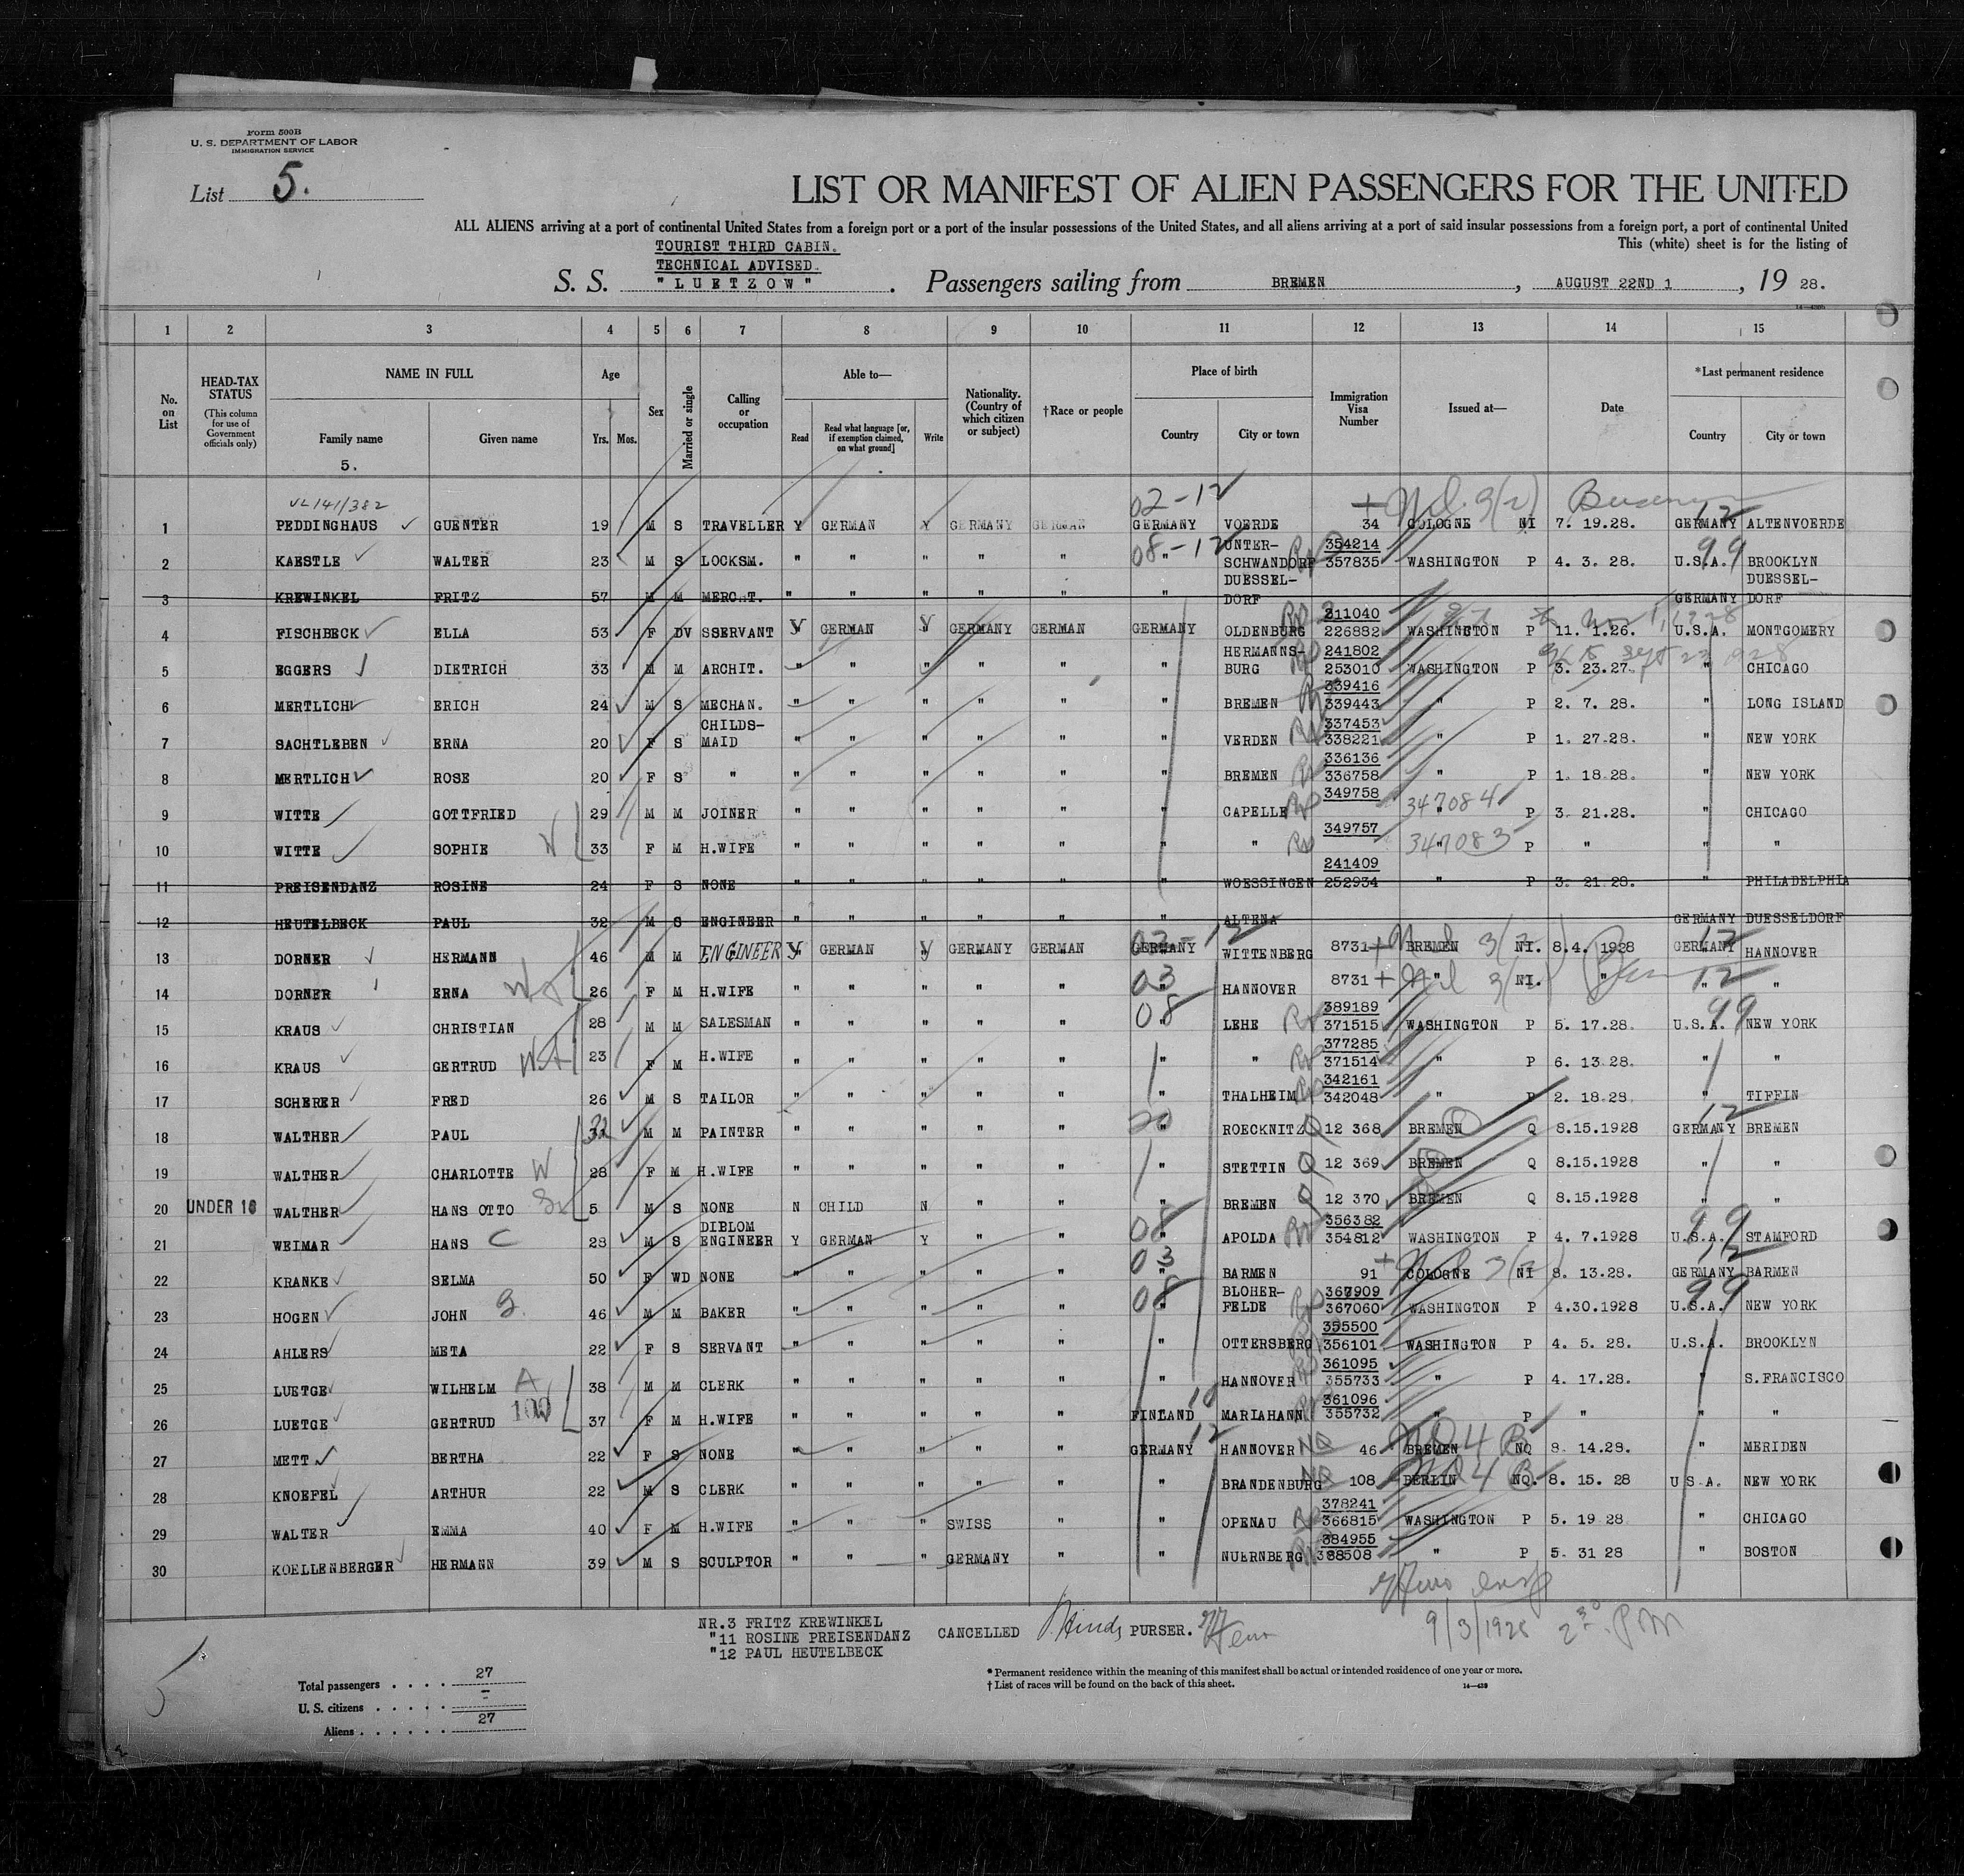 Form 500B
U. S. DEPARTMENT OF LABOR
IMMIGRATION SERVICE
List 5.
LIST OR MANIFEST OF ALIEN PASSENGERS FOR THE UNITED
ALL ALIENS arriving at a port of continental United States from a foreign port or a port of the insular possessions of the United States, and all aliens arriving at a port of said insular possessions from a foreign port, a port of continental United
This (white) sheet is for the listing of
TOURIST THIRD CABIN.
TECHNICAL ADVISED.
S. S. "LUETZOW". Passengers sailing from BREMEN, AUGUST 22ND 1, 19 28.
1 2 3 4 5 6 7 8 9 10 11 12 13 14 15
No. on List
HEAD-TAX STATUS (This column for use of Government officials only)
NAME IN FULL Family name Given name
Age Yrs. Mos.
Sex
Married or single
Calling or occupation
Able to— Read Read what language [or, if exemption claimed, on what ground] Write
Nationality. (Country of which citizen or subject)
† Race or people
Place of birth Country City or town
Immigration Visa Number
Issued at—
Date
*Last permanent residence Country City or town
5.
02-12
1 PEDDINGHAUS GUENTER 19 M S TRAVELLER Y GERMAN Y GERMANY GERMAN GERMANY VOERDE 34 COLOGNE NI 7. 19.28. GERMANY 12 ALTENVOERDE
2 KAESTLE WALTER 23 M S LOCKSM. " " " " " 08-12 " UNTER-SCHWANDORF 354214 357835 WASHINGTON P 4. 3. 28. U.S.A. 99 BROOKLYN
3 KREWINKEL FRITZ 57 M M MERCHT. " " " " " " DUESSEL-DORF GERMANY DUESSEL-DORF
4 FISCHBECK ELLA 53 F DV SSERVANT Y GERMAN Y GERMANY GERMAN GERMANY OLDENBURG 211040 226882 WASHINGTON P 11. 1.26. U.S.A. MONTGOMERY
5 EGGERS DIETRICH 33 M M ARCHIT. " " " " " " HERMANNS-BURG 241802 253010 WASHINGTON P 3. 23.27. " CHICAGO
6 MERTLICH ERICH 24 M S MECHAN. " " " " " " BREMEN 339416 339443 " P 2. 7. 28. " LONG ISLAND
7 SACHTLEBEN ERNA 20 F S CHILDS-MAID " " " " " " VERDEN 337453 338221 " P 1. 27.28. " NEW YORK
8 MERTLICH ROSE 20 F S " " " " " " " BREMEN 336136 336758 " P 1. 18.28. " NEW YORK
9 WITTE GOTTFRIED 29 M M JOINER " " " " " " CAPELLE 349758 347084 " P 3. 21.28. " CHICAGO
10 WITTE SOPHIE W 33 F M H.WIFE " " " " " " " 349757 347083 " P " " "
11 PREISENDANZ ROSINE 24 F S NONE " " " " " " WOESSINGEN 241409 252934 " P 3. 21.28. " PHILADELPHIA
12 HEUTELBECK PAUL 32 M S ENGINEER " " " " " " ALTENA GERMANY DUESSELDORF
13 DORNER HERMANN 46 M M ENGINEER Y GERMAN Y GERMANY GERMAN GERMANY WITTENBERG 8731 BREMEN NI. 8.4. 1928 GERMANY 12 HANNOVER
14 DORNER ERNA 26 F M H.WIFE " " " " " 03 " HANNOVER 8731 " NI. " " 12 "
15 KRAUS CHRISTIAN 28 M M SALESMAN " " " " " 08 " LEHE 389189 371515 WASHINGTON P 5. 17.28. U.S.A. 99 NEW YORK
16 KRAUS GERTRUD 23 F M H.WIFE " " " " " " " 377285 371514 " P 6. 13.28. " "
17 SCHERER FRED 26 M S TAILOR " " " " " " THALHEIM 342161 342048 " P 2. 18.28 " TIFFIN
18 WALTHER PAUL 32 M M PAINTER " " " " " 20 " ROECKNITZ 12 368 BREMEN Q 8.15.1928 GERMANY 12 BREMEN
19 WALTHER CHARLOTTE W 28 F M H.WIFE " " " " " " STETTIN 12 369 BREMEN Q 8.15.1928 " "
20 UNDER 16 WALTHER HANS OTTO 5 M S NONE N CHILD N " " " BREMEN 12 370 BREMEN Q 8.15.1928 " "
21 WEIMAR HANS C 28 M S DIBLOM ENGINEER Y GERMAN Y " " 08 " APOLDA 356382 354812 WASHINGTON P 4. 7.1928 U.S.A. 99 STAMFORD
22 KRANKE SELMA 50 F WD NONE " " " " " 03 " BARMEN 91 COLOGNE NI 8. 13.28. GERMANY 12 BARMEN
23 HOGEN JOHN 46 M M BAKER " " " " " 08 " BLOHER-FELDE 367909 367060 WASHINGTON P 4.30.1928 U.S.A. 99 NEW YORK
24 AHLERS META 22 F S SERVANT " " " " " " OTTERSBERG 355500 356101 WASHINGTON P 4. 5. 28. U.S.A. BROOKLYN
25 LUETGE WILHELM A 38 M M CLERK " " " " " " HANNOVER 361095 355733 " P 4. 17.28. " S.FRANCISCO
26 LUETGE GERTRUD 100 37 F M H.WIFE " " " " " FINLAND MARIAHANN 361096 355732 " P " " "
27 METT BERTHA 22 F S NONE " " " " " GERMANY 12 HANNOVER 46 BREMEN NQ 8. 14.28. " MERIDEN
28 KNOEFEL ARTHUR 22 M S CLERK " " " " " " BRANDENBURG 108 BERLIN NQ. 8. 15. 28 U.S.A. NEW YORK
29 WALTER EMMA 40 F M H.WIFE " " " SWISS " " OPENAU 378241 366815 WASHINGTON P 5. 19 28 " CHICAGO
30 KOELLENBERGER HERMANN 39 M S SCULPTOR " " " GERMANY " " NUERNBERG 384955 388508 " P 5. 31 28 " BOSTON
NR.3 FRITZ KREWINKEL
"11 ROSINE PREISENDANZ CANCELLED PURSER.
"12 PAUL HEUTELBECK
9/3/1928 2 30 PM
Total passengers . . . . 27
U. S. citizens . . . . . -
Aliens . . . . . . 27
* Permanent residence within the meaning of this manifest shall be actual or intended residence of one year or more.
† List of races will be found on the back of this sheet.
5